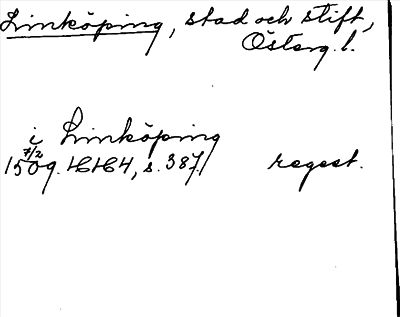 Linköping, stad och stift,
Österg. l.
i Linköping
7/2
1509. HH4, s. 387/ regest.